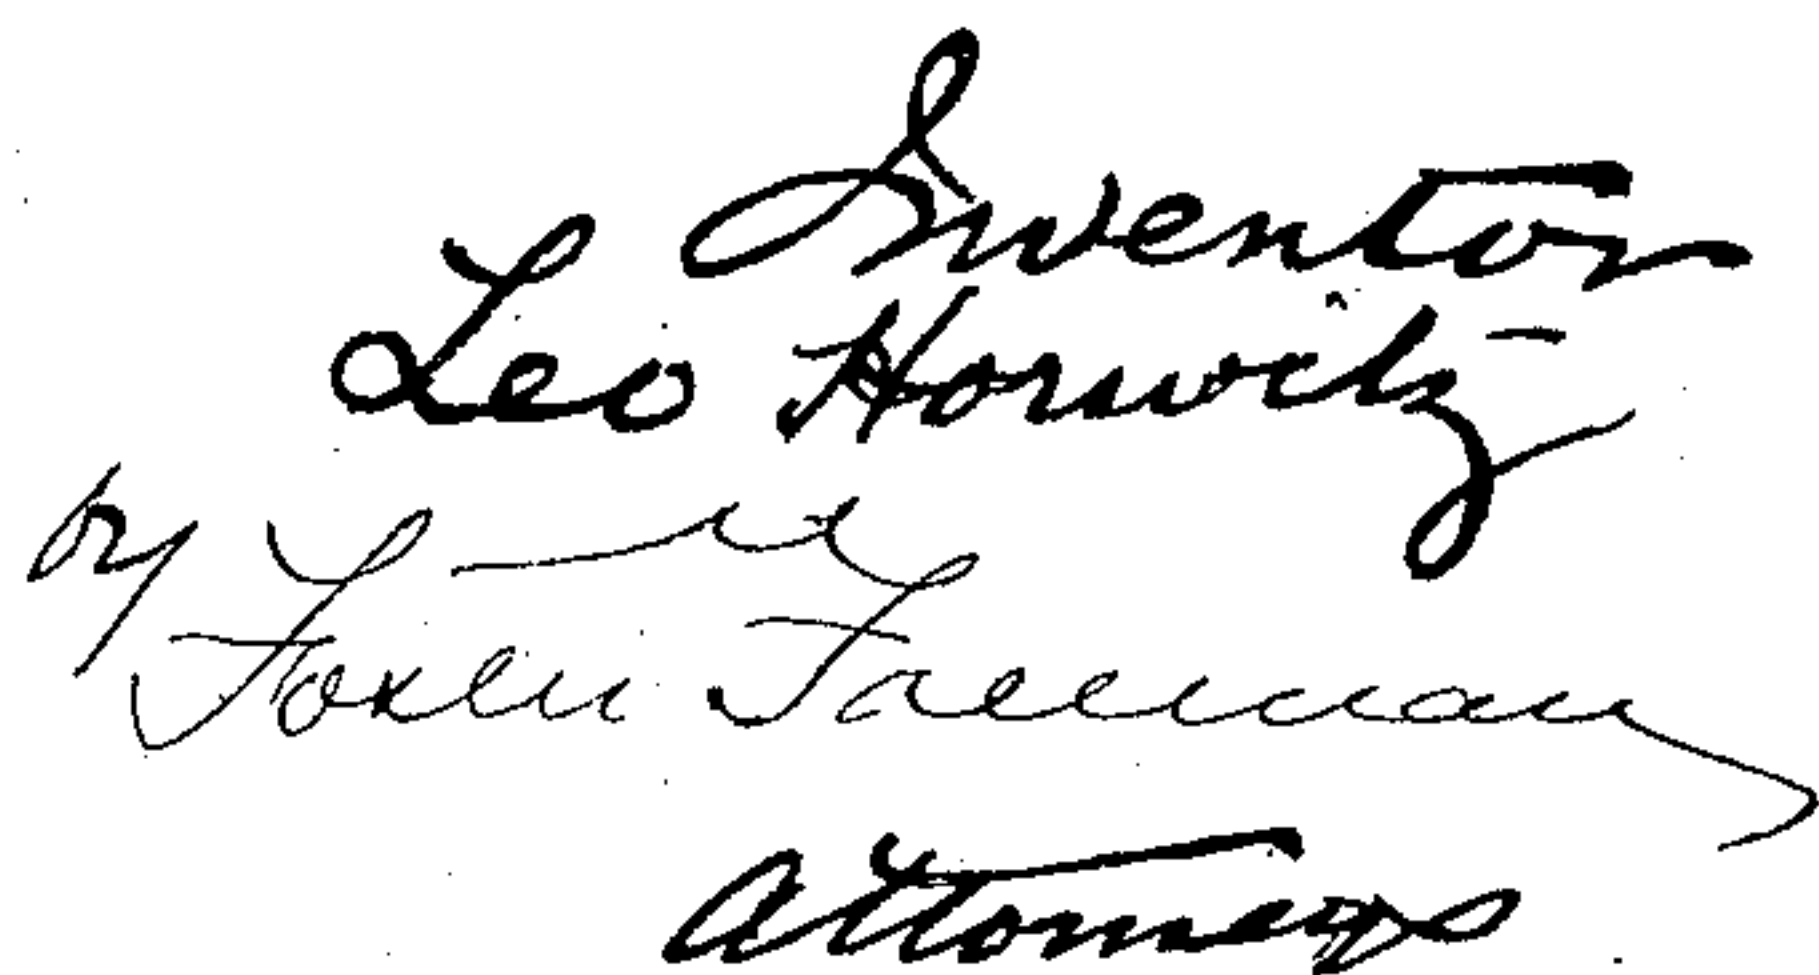 Inventor
Leo Horwitz
by
Foster Freeman
Attorneys